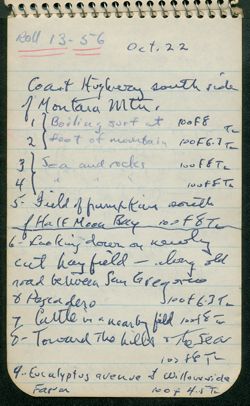 Roll 13-56
Oct. 22
Coast Highway south side
of Montara Mtn.
1 } Boiling surf at 100 F8
2 } foot of mountain 100 F6.3 Tn
3 } Sea and rocks 100 F8 Tn
4 } " " " 100 F8 Tn
5- Field of pumpkins south
of Half Moon Bay 100 F8 Tn
6- Looking down on newly
cut hay field - along old
road between San Gregorio
& Pescadero 100 F6.3 Tn
7- Cattle in a nearby field 100 F8
8- Toward the hills & the sea
100 F8 Tn
9- Eucalyptus avenue of Willowside
Farm 100 F 4.5 Tn